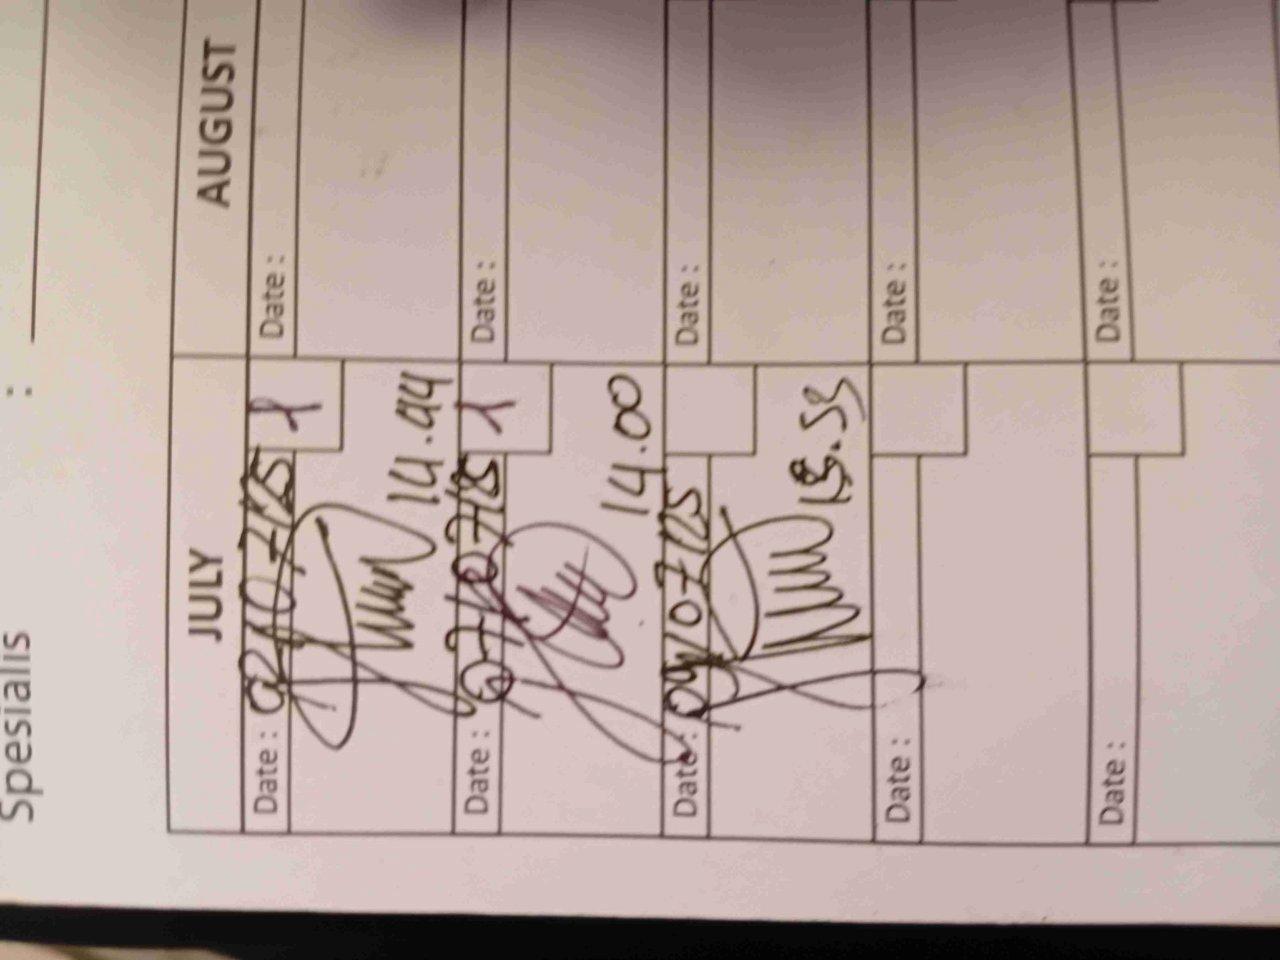 Spesialis :
JULY AUGUST
Date : Date :
14.44
Date : 07/07/25 Date :
14.00
Date : 09/07/25 Date :
Date : Date :
Date : Date :